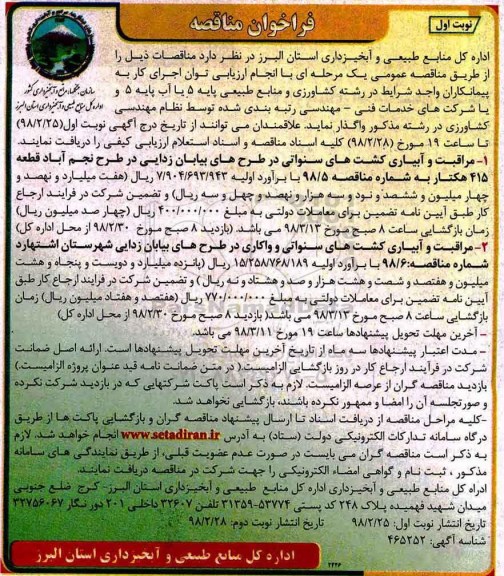 نوبت اول
فراخوان مناقصه
سازمان جنگلها، مراتع و آبخیزداری کشور
اداره کل منابع طبیعی و آبخیزداری استان البرز
اداره کل منابع طبیعی و آبخیزداری استان البرز در نظر دارد مناقصات ذیل را
از طریق مناقصه عمومی یک مرحله ای با انجام ارزیابی توان اجرای کار به
پیمانکاران واجد شرایط در رشته کشاورزی و منابع طبیعی پایه ۵ یا آب پایه ۵ و
یا شرکت های خدمات فنی - مهندسی رتبه بندی شده توسط نظام مهندسی
کشاورزی در رشته مذکور واگذار نماید. علاقمندان می توانند از تاریخ درج آگهی نوبت اول(۹۸/۲/۲۵)
تا ساعت ۱۹ مورخ (۹۸/۲/۲۸) کلیه اسناد مناقصه و اسناد استعلام ارزیابی کیفی را دریافت نمایند.
۱- مراقبت و آبیاری کشت های سنواتی در طرح های بیابان زدایی در طرح نجم آباد قطعه
۴۱۵ هکتار به شماره مناقصه ۹۸/۵ با برآورد اولیه ۷/۹۰۴/۶۹۳/۹۴۳ ریال (هفت میلیارد و نهصد و
چهار میلیون و ششصد و نود و سه هزار و نهصد و چهل و سه ریال) و تضمین شرکت در فرایند ارجاع
کار طبق آیین نامه تضمین برای معاملات دولتی به مبلغ ۴۰۰/۰۰۰/۰۰۰ ریال (چهار صد میلیون ریال)
زمان بازگشایی ساعت ۸ صبح مورخ ۹۸/۳/۱۳ می باشد. (بازدید ۸ صبح مورخ ۹۸/۲/۳۰ از محل اداره کل)
۲- مراقبت و آبیاری کشت های سنواتی و واکاری در طرح های بیابان زدایی شهرستان اشتهارد
شماره مناقصه:۹۸/۶ با برآورد اولیه ۱۵/۲۵۸/۷۶۸/۱۸۹ ریال (پانزده میلیارد و دویست و پنجاه و هشت
میلیون و هفتصد و شصت و هشت هزار و صد و هشتاد و نه ریال ) و تضمین شرکت در فرایند ارجاع کار طبق
آیین نامه تضمین برای معاملات دولتی به مبلغ ۷۷۰/۰۰۰/۰۰۰ ریال (هفتصد و هفتاد میلیون ریال) زمان
بازگشایی ساعت ۸ صبح مورخ ۹۸/۳/۱۳ می باشد( بازدید ۸ صبح مورخ ۹۸/۲/۳۰ از محل اداره کل )
- آخرین مهلت تحویل پیشنهادها ساعت ۱۹ مورخ ۹۸/۳/۱۱ می باشد.
- مدت اعتبار پیشنهادها سه ماه از تاریخ آخرین مهلت تحویل پیشنهادها است. ارائه اصل ضمانت
شرکت در فرایند ارجاع کار در روز بازگشایی الزامیست.( در متن ضمانت نامه قید عنوان پروژه الزامیست.)
بازدید مناقصه گران از عرصه الزامیست. لازم به ذکر است پاکت شرکتهایی که در بازدید شرکت نکرده
و صورتجلسه آن را امضا و ممهور نکرده باشند، بازگشایی نخواهد شد.
-کلیه مراحل از دریافت اسناد تا ارسال پیشنهاد مناقصه گران و بازگشایی پاکت ها از طریق
درگاه سامانه تدارکات الکترونیکی دولت (ستاد) به آدرس www.setadiran.ir انجام خواهد شد. لازم
به ذکر است مناقصه گران می بایست در صورت عدم عضویت قبلی، از طریق نمایندگی های سامانه
مذکور ، ثبت نام و گواهی امضاء الکترونیکی را جهت شرکت در مناقصه دریافت نمایند.
ادراه کل منابع طبیعی و آبخیزداری اداره کل منابع طبیعی و آبخیزداری استان البرز- کرج ضلع جنوبی
میدان شهید فهمیده پلاک ۲۴۸ کد پستی ۵۳۷۷۴-۳۱۳۵۹ تلفن ۳۲۶۰۷ داخلی ۲۰۱ دور نگار ۳۲۷۵۶۰۶۷
تاریخ انتشار نوبت اول: ۹۸/۲/۲۵ تاریخ انتشار نوبت دوم: ۹۸/۲/۲۸
شناسه آگهی: ۴۶۵۲۵۲
اداره کل منابع طبیعی و آبخیزداری استان البرز
۲۲۴۶